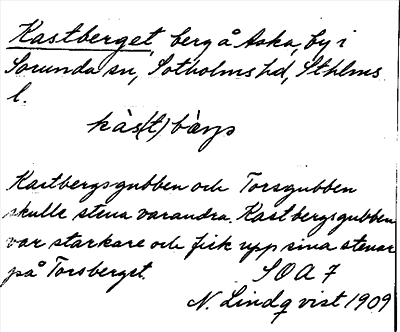 Kastberget, berg å Aska, by i
Sorunda sn, Sotholms hd, Sthlms
l.
kàs(t)bàrjs
Kastbergsgubben och Torsgubben
skulle stena varandra. Kastbergsgubben
var starkare och fick upp sina stenar
på Torsberget.
SOA 7
N. Lindqvist 1909